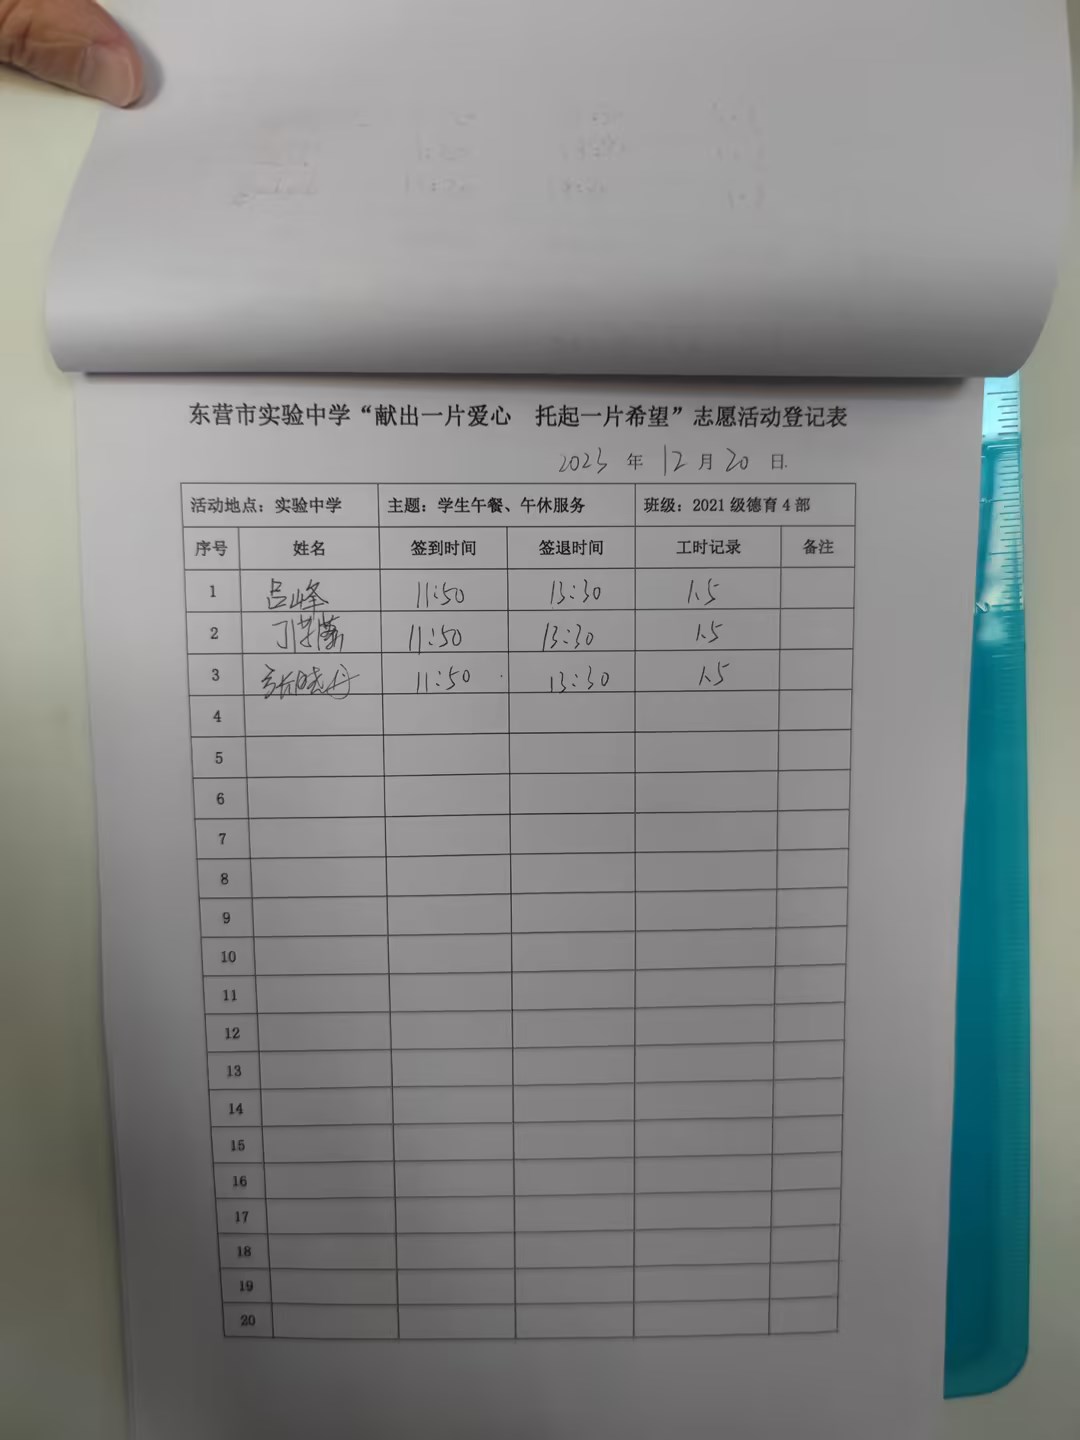 东营市实验中学“献出一片爱心 托起一片希望”志愿活动登记表
2023 年 12 月 20 日
活动地点：实验中学 主题：学生午餐、午休服务 班级：2021 级德育 4 部
序号 姓名 签到时间 签退时间 工时记录 备注
1 吕峰 11:50 13:30 1.5
2 丁 11:50 13:30 1.5
3 张晓丹 11:50 13:30 1.5
4
5
6
7
8
9
10
11
12
13
14
15
16
17
18
19
20